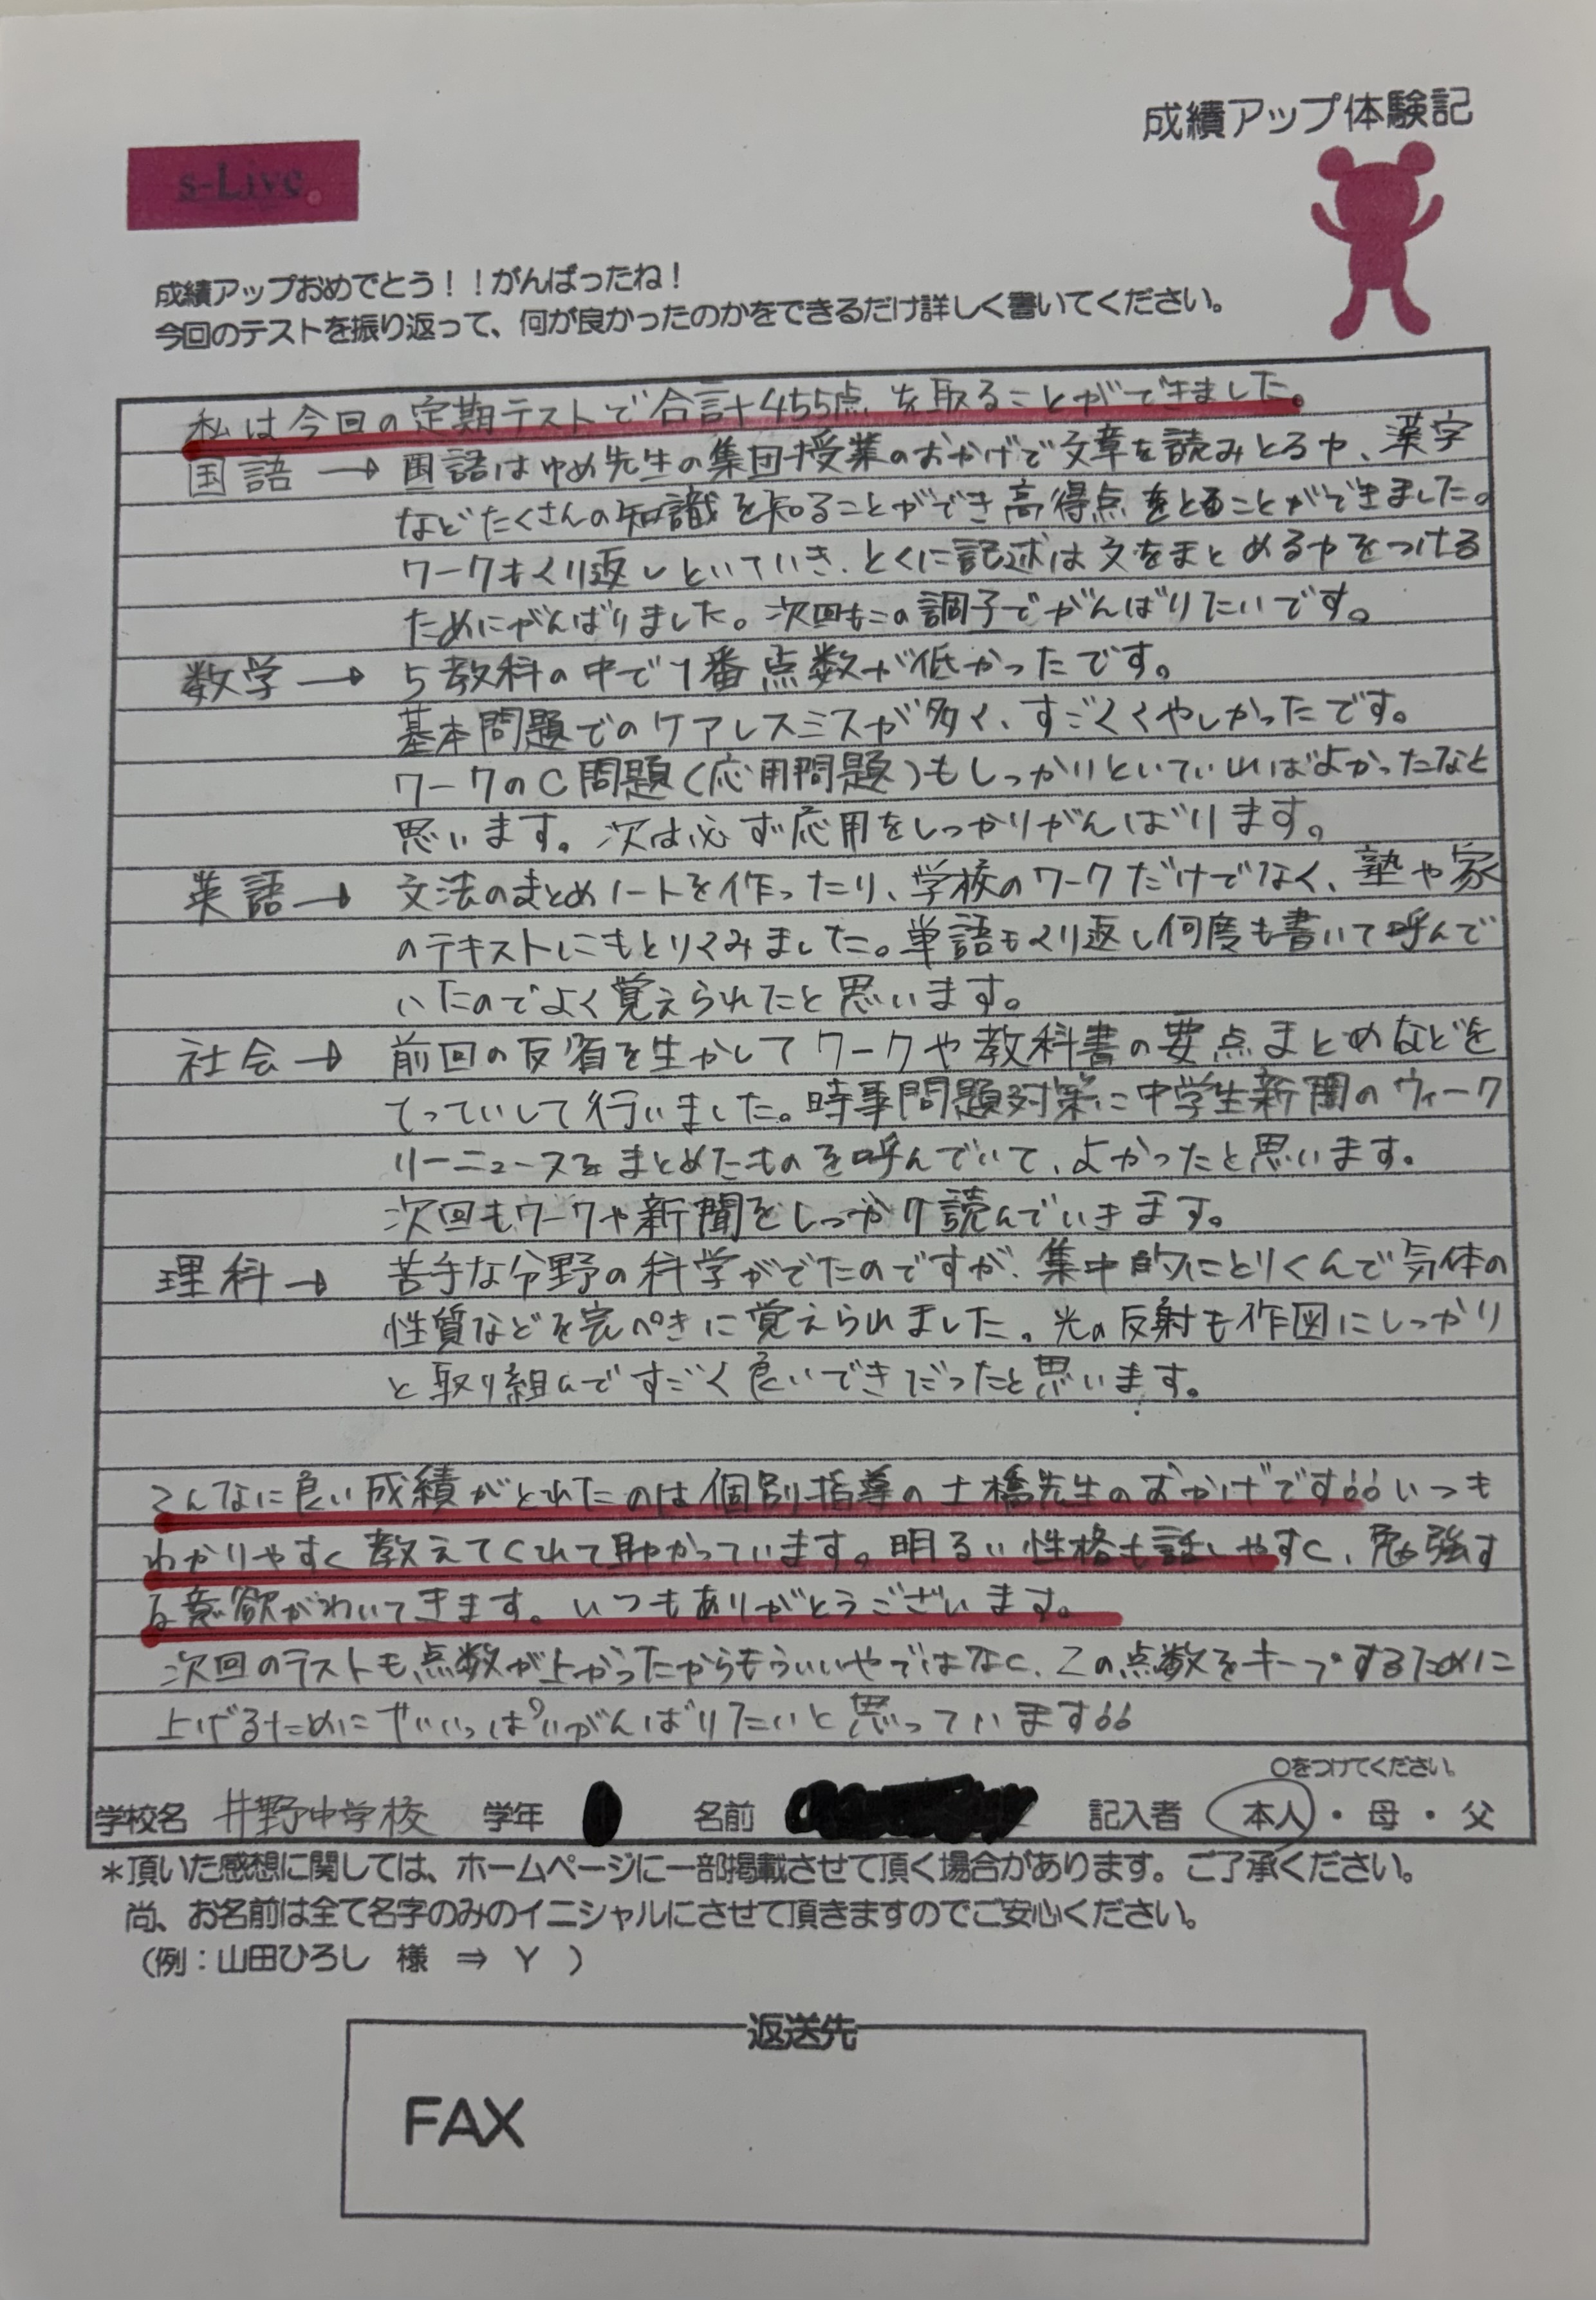 成績アップ体験記
s-Live。
成績アップおめでとう！！がんばったね！
今回のテストを振り返って、何が良かったのかをできるだけ詳しく書いてください。
私は今回の定期テストで合計455点を取ることができました。
国語→国語はゆめ先生の集団授業のおかげで文章を読みとる力、漢字
などたくさんの知識を知ることができ高得点をとることができました。
ワークもくり返しといていき、とくに記述は文をまとめる力をつける
ためにがんばりました。次回もこの調子でがんばりたいです。
数学→5教科の中で1番点数が低かったです。
基本問題でのケアレスミスが多く、すごくくやしかったです。
ワークのC問題(応用問題)もしっかりといていればよかったなと
思います。次は必ず応用をしっかりがんばります。
英語→文法のまとめノートを作ったり、学校のワークだけでなく、塾や家
のテキストにもとりくみました。単語もくり返し何度も書いて呼んで
いたのでよく覚えられたと思います。
社会→前回の反省を生かしてワークや教科書の要点まとめなどを
てっていして行いました。時事問題対策に中学生新聞のウィーク
リーニュースをまとめたものを呼んでいて、よかったと思います。
次回もワークや新聞をしっかり読んでいきます。
理科→苦手な分野の科学がでたのですが、集中的にとりくんで気体の
性質などを完ぺきに覚えられました。光の反射も作図にしっかり
と取り組んですごく良いできだったと思います。
こんなに良い成績がとれたのは個別指導の土橋先生のおかげです!!いつも
わかりやすく教えてくれて助かっています。明るい性格も話しやすく、勉強す
る意欲がわいてきます。いつもありがとうございます。
次回のテストも点数が上がったからもういいやではなく、この点数をキープするために
上げるためにせいいっぱいがんばりたいと思っています!!
○をつけてください。
学校名 井野中学校 学年 名前 記入者 本人・母・父
＊頂いた感想に関しては、ホームページに一部掲載させて頂く場合があります。ご了承ください。
尚、お名前は全て名字のみのイニシャルにさせて頂きますのでご安心ください。
（例：山田ひろし 様 ⇒ Y ）
返送先
FAX